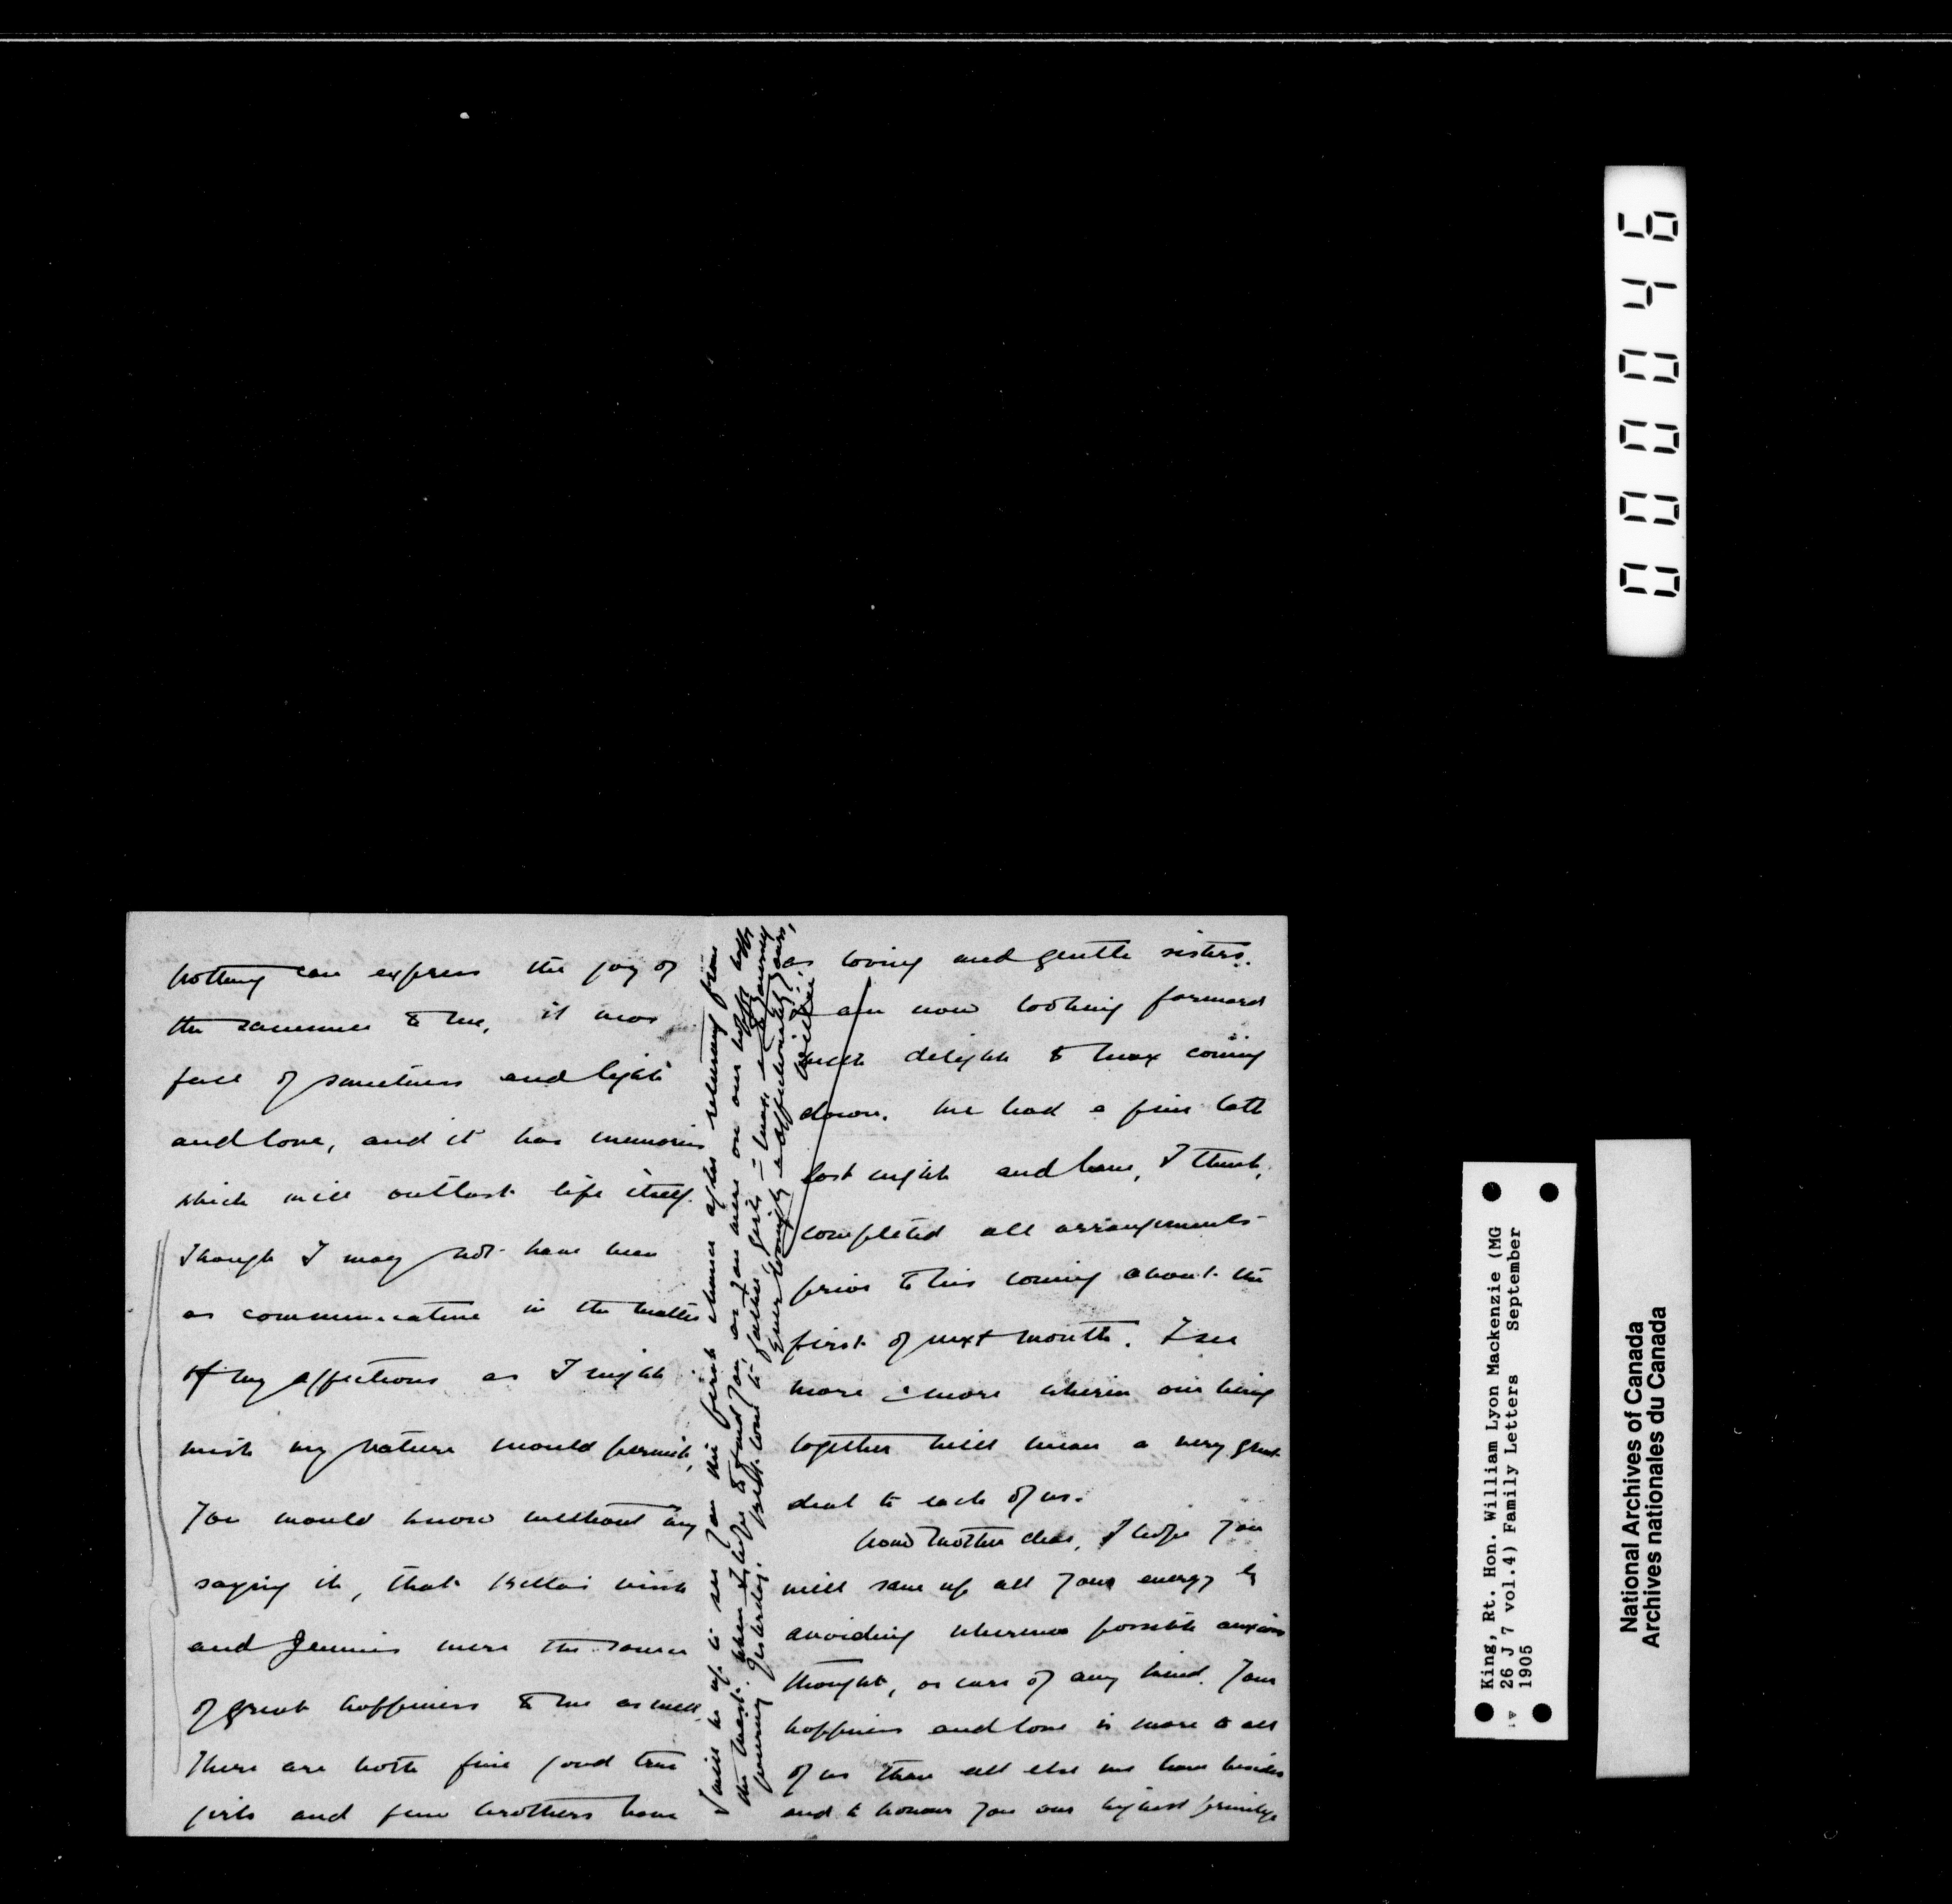 nothing can express the joy of
the summer to me, it was
full of sweetness and light
and love, and it has memories
which will outlast life itself.
Though I may not have been
as communicative in the matter
of my affections as I might
wish my nature would permit,
you would know without my
saying it, that Bella's visit
and Jennie's were the source
of great happiness to me as well.
There are both fine good true
girls and few brothers have
as loving and gentle sisters.
I am now looking forward
with delight to Max coming
down. We had a fine talk
last night and have, I think,
completed all arrangements
prior to his coming about the
first of next month. I see
more & more wherein our being
together will mean a very great
deal to each of us.
Now Mother dear, I hope you
will save up all your energy by
avoiding wherever possible anxious
thought, or care of any kind. Your
happiness and love is more to all
of us than all else we have besides
and to honour you our highest privilege
I will be up to see you the first chance after returning from
the West. when I hope to find you, as you were on our happy happy
journey yesterday. Best love to father, girls & Max, & to yourself
Ever lovingly & affectionately yours,
Willie.
000046
King, Rt. Hon. William Lyon Mackenzie (MG
26 J 7 vol.4) Family Letters September
1905
National Archives of Canada
Archives nationales du Canada